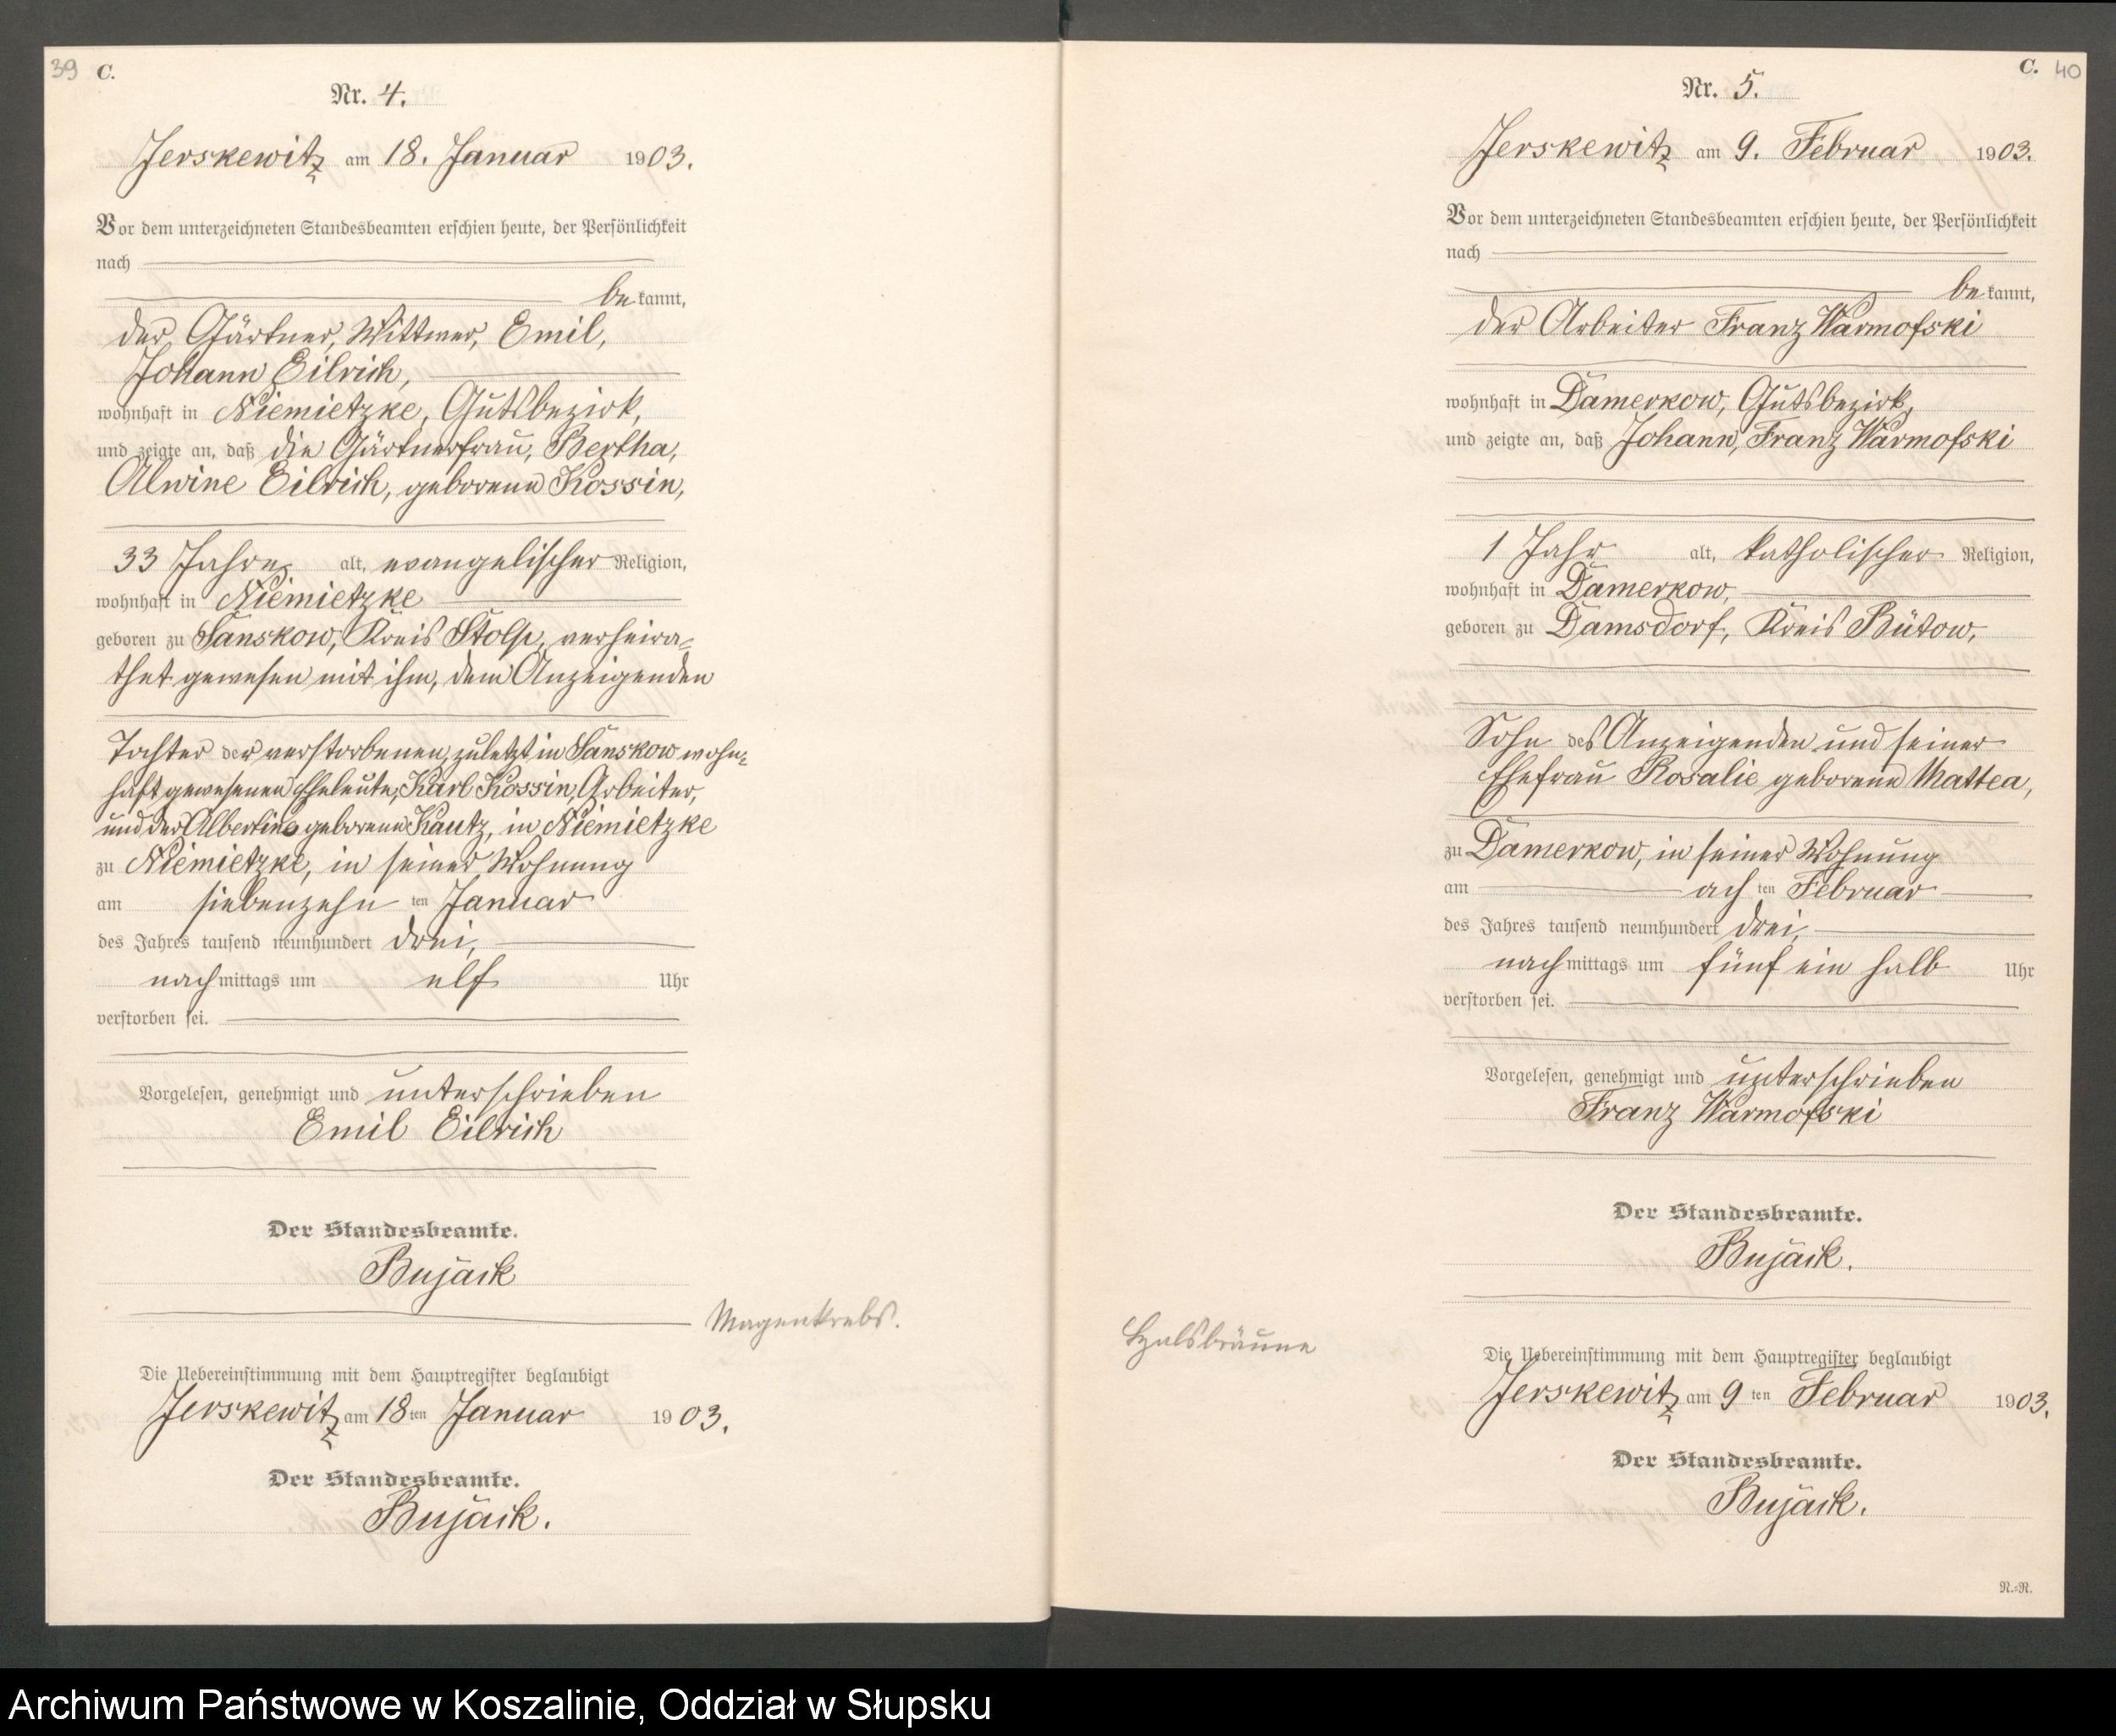 39 C.
Nr. 4.
Jerskewitz am 18. Januar 1903.
Vor dem unterzeichneten Standesbeamten erschien heute, der Persönlichkeit
nach
bekannt,
der Gärtner, Wittwer, Emil,
Johann Eilrich,
wohnhaft in Niemietzke, Gutsbezirk,
und zeigte an, daß die Gärtnerfrau, Bertha,
Alwine Eilrich, geborene Kossin,
33 Jahre alt, evangelischer Religion,
wohnhaft in Niemietzke
geboren zu Sanskow, Kreis Stolp, verheira-
thet gewesen mit ihm, dem Anzeigenden
Tochter der verstorbenen, zuletzt in Sanskow wohn-
haft gewesenen Eheleute, Karl Kossin, Arbeiter,
und der Albertine geborene Kautz, in Niemietzke
zu Niemietzke, in seiner Wohnung
am siebenzehn ten Januar
des Jahres tausend neunhundert drei,
nachmittags um elf Uhr
verstorben sei.
Vorgelesen, genehmigt und unterschrieben
Emil Eilrich
Der Standesbeamte.
Bujack
Magenkrebs.
Die Uebereinstimmung mit dem Hauptregister beglaubigt
Jerskewitz am 18ten Januar 1903.
Der Standesbeamte.
Bujack.
C. 40
Nr. 5.
Jerskewitz am 9. Februar 1903.
Vor dem unterzeichneten Standesbeamten erschien heute, der Persönlichkeit
nach
bekannt,
der Arbeiter Franz Warmofski
wohnhaft in Damerkow, Gutsbezirk,
und zeigte an, daß Johann, Franz Warmofski
1 Jahr alt, katholischer Religion,
wohnhaft in Damerkow,
geboren zu Damsdorf, Kreis Bütow,
Sohn des Anzeigenden und seiner
Ehefrau Rosalie geborene Mattea,
zu Damerkow, in seiner Wohnung
am ach ten Februar
des Jahres tausend neunhundert drei,
nachmittags um fünf ein halb Uhr
verstorben sei.
Vorgelesen, genehmigt und unterschrieben
Franz Warmofski
Der Standesbeamte.
Bujack.
Halsbräune
Die Uebereinstimmung mit dem Hauptregister beglaubigt
Jerskewitz am 9 ten Februar 1903.
Der Standesbeamte.
Bujack.
N.=R.
Archiwum Państwowe w Koszalinie, Oddział w Słupsku